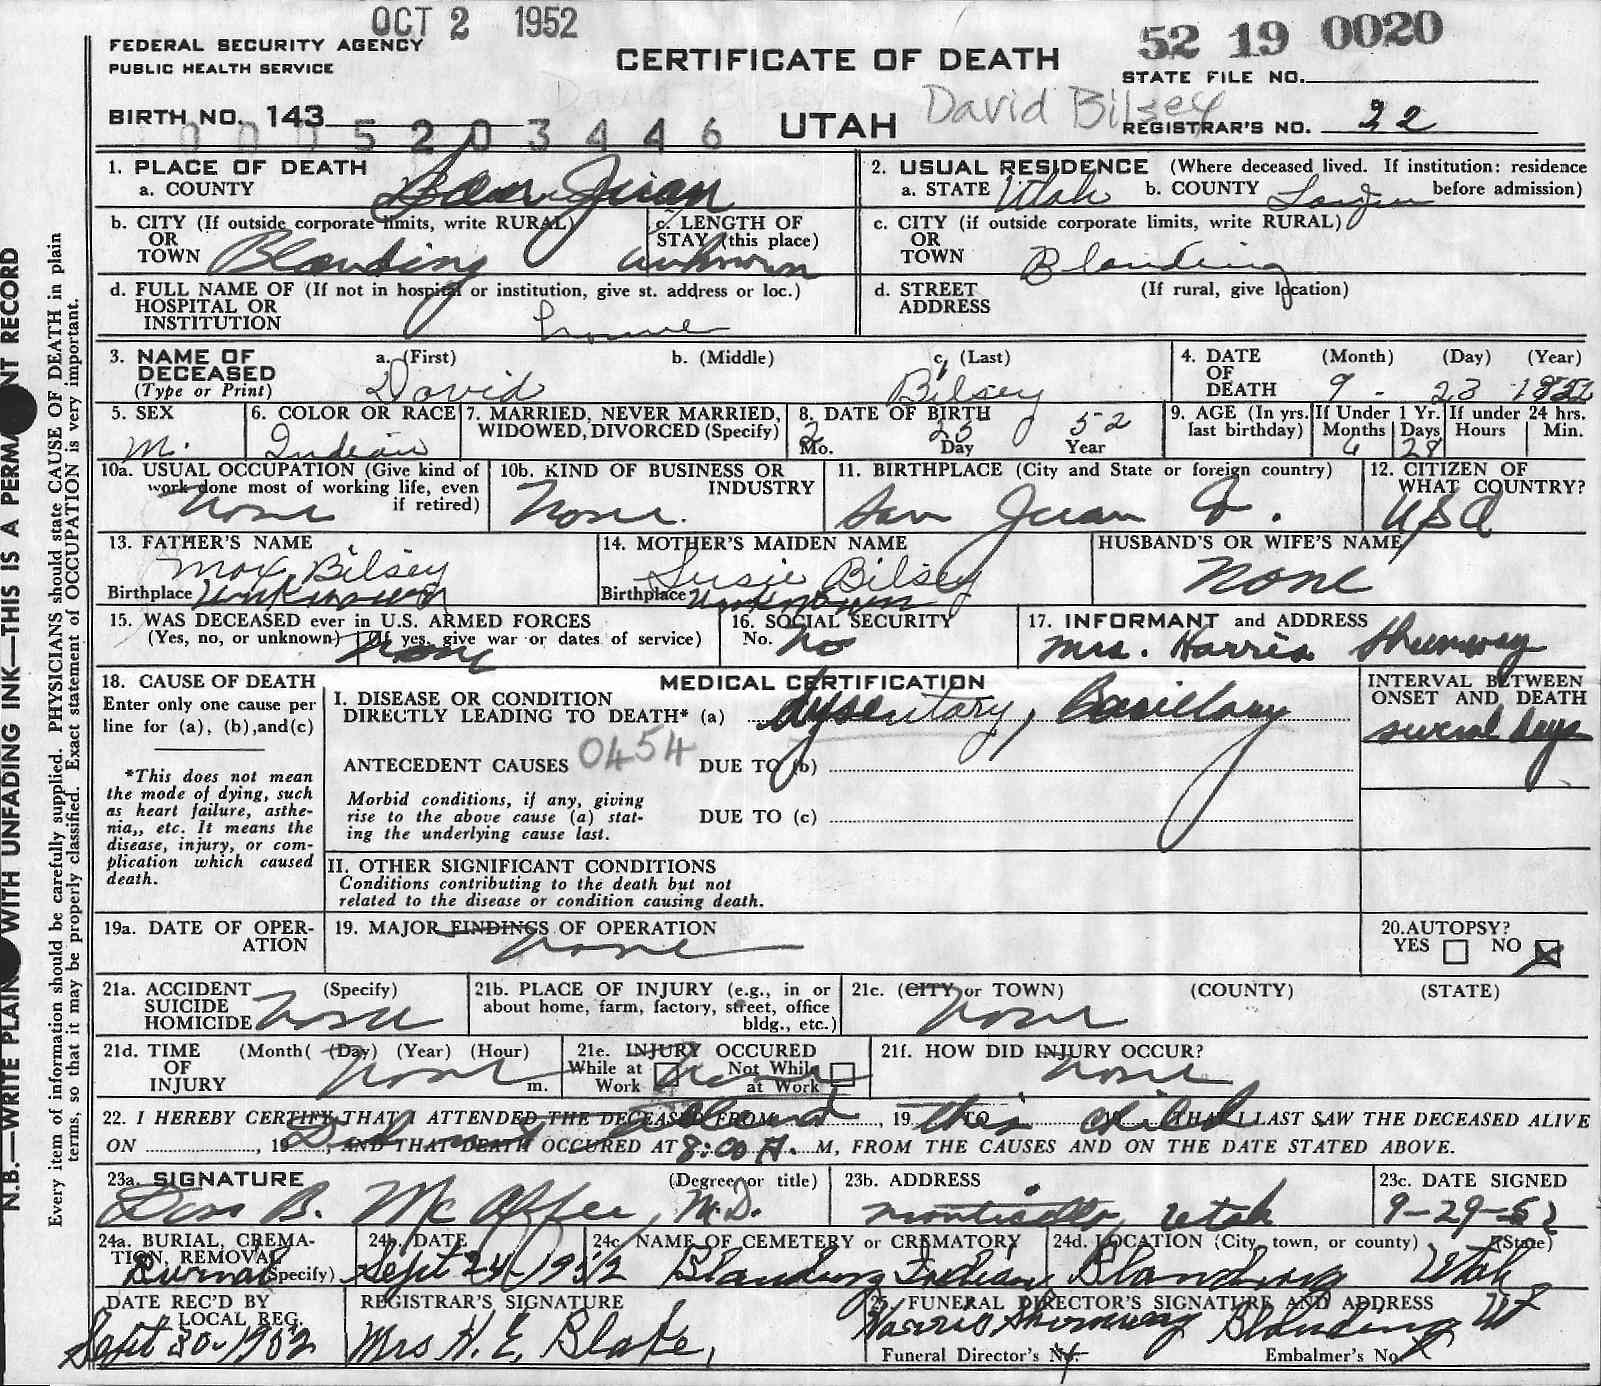 OCT 2 1952
52 19 0020
FEDERAL SECURITY AGENCY
PUBLIC HEALTH SERVICE
CERTIFICATE OF DEATH
STATE FILE NO.
David Bilsey
BIRTH NO. 143
UTAH
REGISTRAR'S NO. 22
0005203446
1. PLACE OF DEATH
a. COUNTY San Juan
2. USUAL RESIDENCE (Where deceased lived. If institution: residence before admission)
a. STATE Utah b. COUNTY
b. CITY (If outside corporate limits, write RURAL)
OR
TOWN Blanding
c. LENGTH OF
STAY (this place)
unknown
c. CITY (if outside corporate limits, write RURAL)
OR
TOWN Blanding
d. FULL NAME OF (If not in hospital or institution, give st. address or loc.)
HOSPITAL OR
INSTITUTION home
d. STREET (If rural, give location)
ADDRESS
3. NAME OF DECEASED
(Type or Print)
a. (First) David
b. (Middle)
c. (Last) Bilsey
4. DATE OF DEATH
(Month) (Day) (Year)
9 - 23 1952
5. SEX
M.
6. COLOR OR RACE
Indian
7. MARRIED, NEVER MARRIED,
WIDOWED, DIVORCED (Specify)
8. DATE OF BIRTH
2 25 52
Mo. Day Year
9. AGE (In yrs. last birthday)
If Under 1 Yr.
Months Days
6 28
If under 24 hrs.
Hours Min.
10a. USUAL OCCUPATION (Give kind of
work done most of working life, even
if retired)
None
10b. KIND OF BUSINESS OR
INDUSTRY
None.
11. BIRTHPLACE (City and State or foreign country)
San Juan Co.
12. CITIZEN OF
WHAT COUNTRY?
USA
13. FATHER'S NAME
Max Bilsey
Birthplace Unknown
14. MOTHER'S MAIDEN NAME
Susie Bilsey
Birthplace Unknown
HUSBAND'S OR WIFE'S NAME
None
15. WAS DECEASED ever in U.S. ARMED FORCES
(Yes, no, or unknown) (If yes, give war or dates of service)
None
16. SOCIAL SECURITY
No. no
17. INFORMANT and ADDRESS
Mrs. Harris Shumway
18. CAUSE OF DEATH
Enter only one cause per
line for (a), (b),and(c)
*This does not mean
the mode of dying, such
as heart failure, asthe-
nia,, etc. It means the
disease, injury, or com-
plication which caused
death.
MEDICAL CERTIFICATION
I. DISEASE OR CONDITION
DIRECTLY LEADING TO DEATH* (a) dysentary, Bacillary
INTERVAL BETWEEN
ONSET AND DEATH
several days
0454
ANTECEDENT CAUSES DUE TO (b)
Morbid conditions, if any, giving
rise to the above cause (a) stat-
ing the underlying cause last.
DUE TO (c)
II. OTHER SIGNIFICANT CONDITIONS
Conditions contributing to the death but not
related to the disease or condition causing death.
19a. DATE OF OPER-
ATION
19. MAJOR FINDINGS OF OPERATION
None
20.AUTOPSY?
YES NO
21a. ACCIDENT (Specify)
SUICIDE
HOMICIDE None
21b. PLACE OF INJURY (e.g., in or
about home, farm, factory, street, office
bldg., etc.)
21c. (CITY or TOWN) (COUNTY) (STATE)
None
21d. TIME (Month( (Day) (Year) (Hour)
OF
INJURY None m.
21e. INJURY OCCURED
While at Work Not While at Work
None
21f. HOW DID INJURY OCCUR?
None
22. I HEREBY CERTIFY THAT I ATTENDED THE DECEASED FROM , 19 TO 19 THAT I LAST SAW THE DECEASED ALIVE
Did not attend this child
ON , 19 , AND THAT DEATH OCCURED AT 8:00 A. M, FROM THE CAUSES AND ON THE DATE STATED ABOVE.
23a. SIGNATURE (Degree or title)
B. McAffee, M.D.
23b. ADDRESS
Monticello, Utah
23c. DATE SIGNED
9-29-52
24a. BURIAL, CREMA-
TION, REMOVAL
(Specify)
Burial
24b. DATE
Sept 24-1952
24c. NAME OF CEMETERY or CREMATORY
Blanding Indian
24d. LOCATION (City, town, or county) (State)
Blanding Utah
DATE REC'D BY
LOCAL REG.
Sept 30-1952
REGISTRAR'S SIGNATURE
Mrs H. E. Blake,
25. FUNERAL DIRECTOR'S SIGNATURE AND ADDRESS
Harris Shumway Blanding Ut
Funeral Director's No. Embalmer's No.
N.B.—WRITE PLAIN WITH UNFADING INK—THIS IS A PERMANENT RECORD
Every item of information should be carefully supplied. PHYSICIANS should state CAUSE OF DEATH in plain
terms, so that it may be properly classified. Exact statement of OCCUPATION is very important.